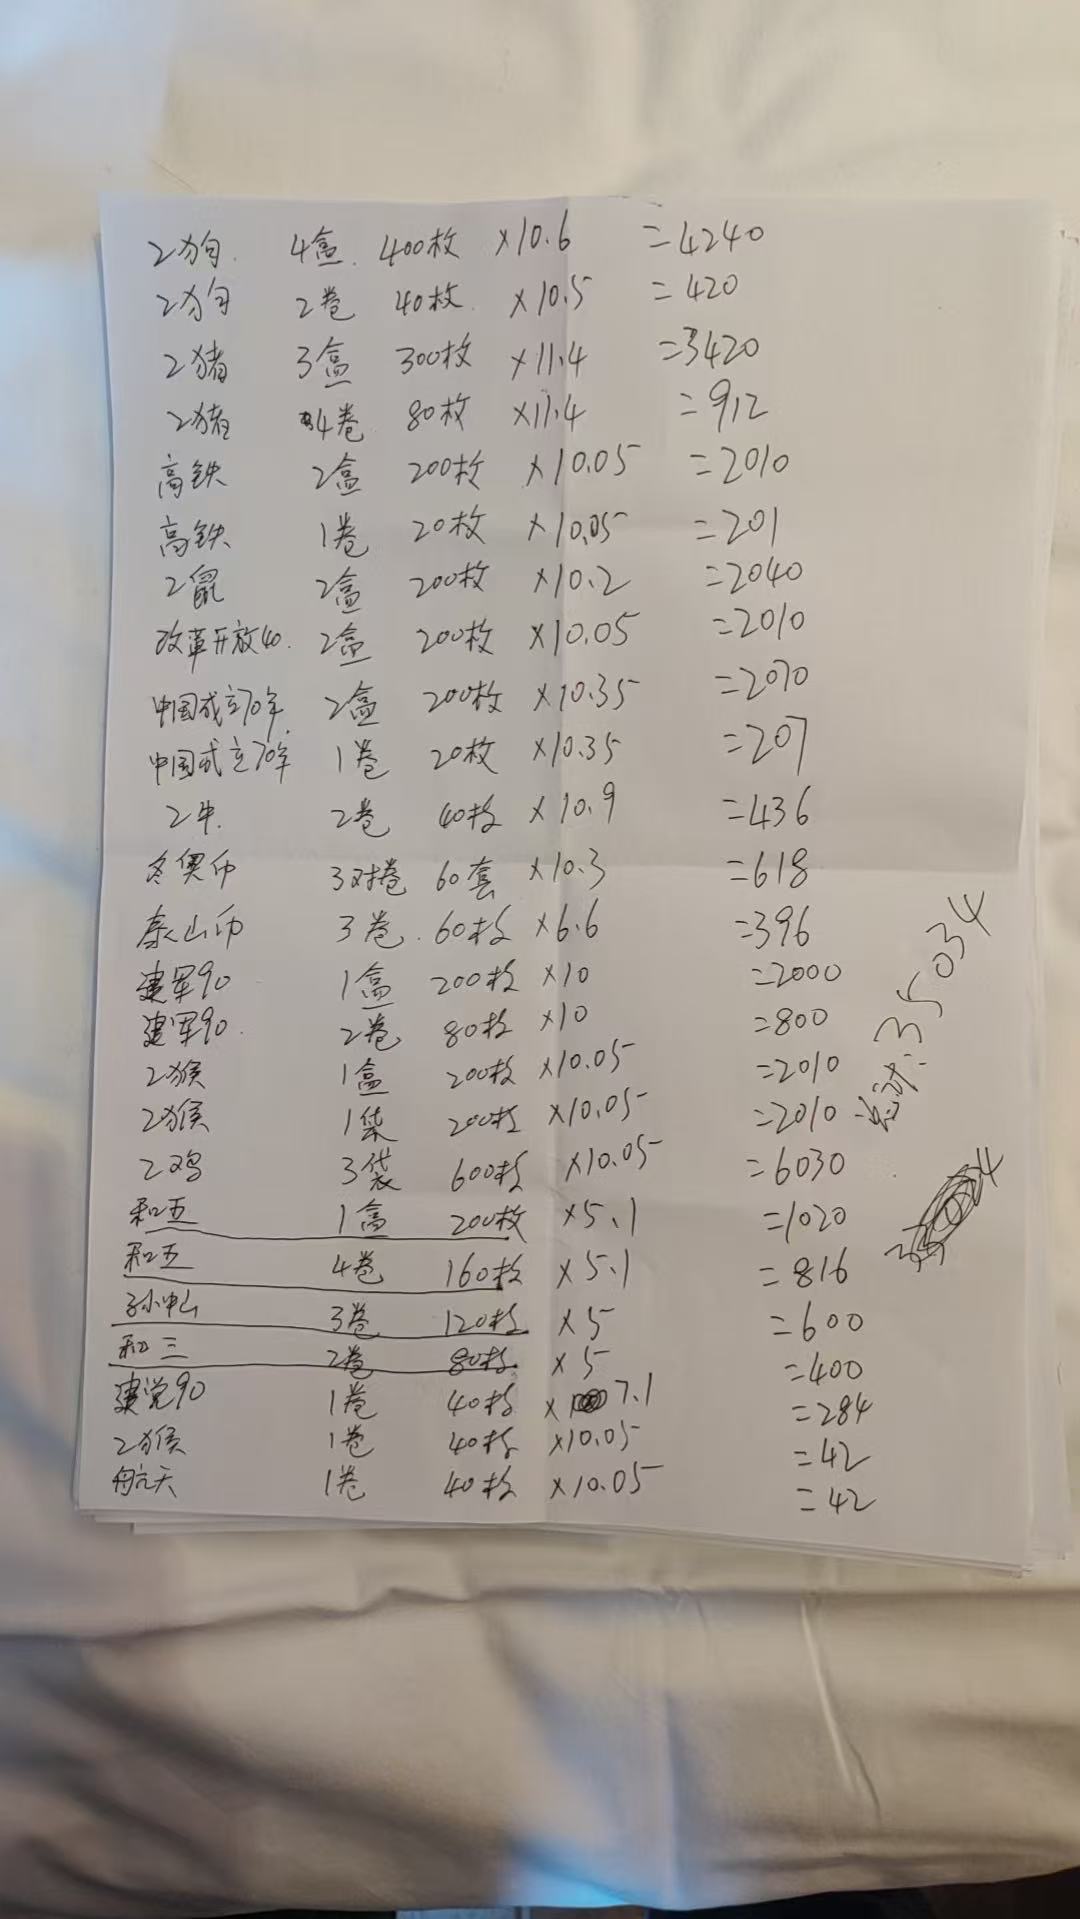 2狗 4盒 400枚 ×10.6 =4240
2狗 2卷 40枚 ×10.5 =420
2猪 3盒 300枚 ×11.4 =3420
2猪 4卷 80枚 ×11.4 =912
高铁 2盒 200枚 ×10.05 =2010
高铁 1卷 20枚 ×10.05 =201
2鼠 2盒 200枚 ×10.2 =2040
改革开放40. 2盒 200枚 ×10.05 =2010
中国成立70年 2盒 200枚 ×10.35 =2070
中国成立70年 1卷 20枚 ×10.35 =207
2牛 2卷 40枚 ×10.9 =436
冬奥币 3对卷 60套 ×10.3 =618
泰山币 3卷 60枚 ×6.6 =396
建军90 1盒 200枚 ×10 =2000
建军90 2卷 80枚 ×10 =800
2猴 1盒 200枚 ×10.05 =2010
2猴 1袋 200枚 ×10.05 =2010
2鸡 3袋 600枚 ×10.05 =6030
和五 1盒 200枚 ×5.1 =1020
和五 4卷 160枚 ×5.1 =816
孙中山 3卷 120枚 ×5 =600
和三 2卷 80枚 ×5 =400
建党90 1卷 40枚 ×7.1 =284
2猴 1卷 40枚 ×10.05 =42
航天 1卷 40枚 ×10.05 =42
总计:35034